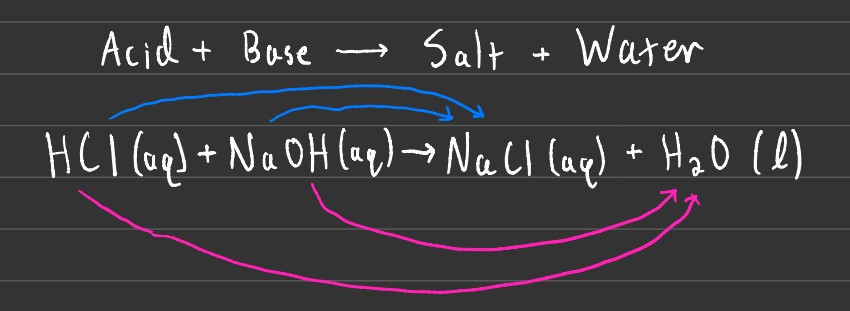 Acid + Base → Salt + Water
HCl(aq) + NaOH(aq) → NaCl(aq) + H₂O (l)